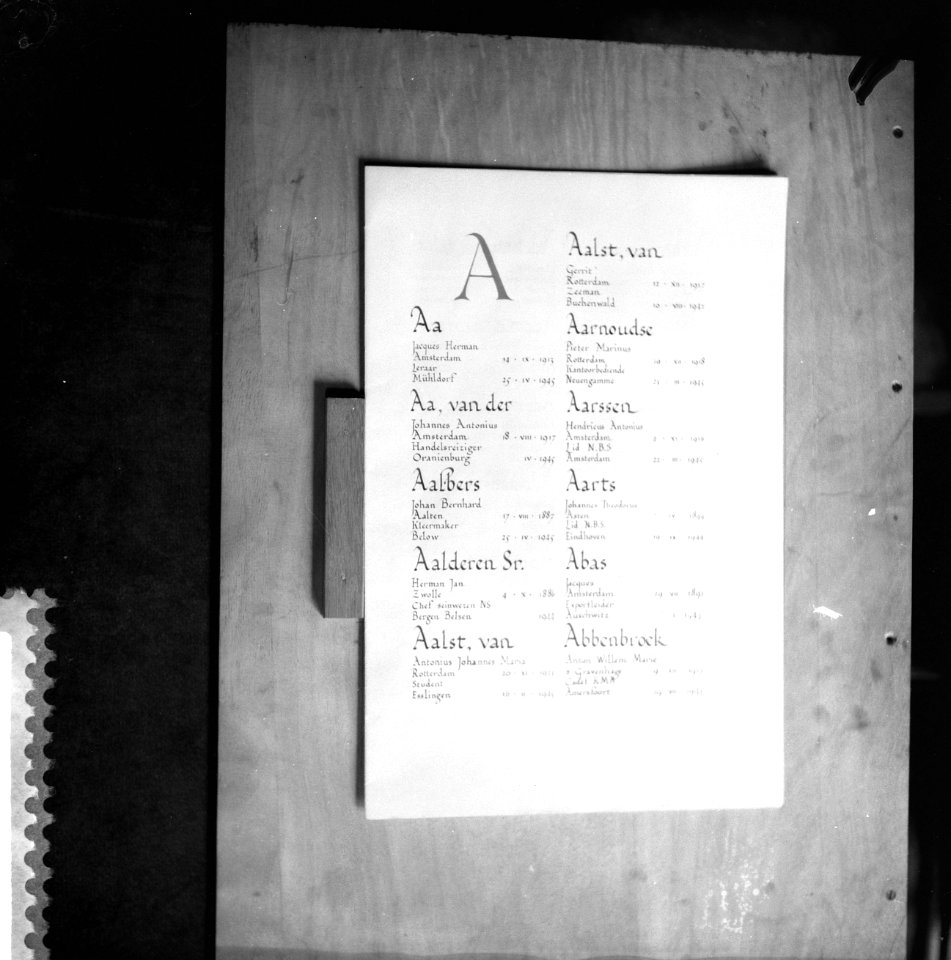 A
Aa
Jacques Herman
Amsterdam 14 · IX · 1913
Leraar
Mühldorf 25 · IV · 1945
Aa, van der
Johannes Antonius
Amsterdam 18 · VIII · 1917
Handelsreiziger
Oranienburg IV · 1945
Aalbers
Johan Bernhard
Aalten 17 · VIII · 1887
Kleermaker
Below 25 · IV · 1945
Aalderen Sr.
Herman Jan
Zwolle 4 · X · 1886
Chef seinwezen NS
Bergen Belsen
Aalst, van
Antonius Johannes Maria
Rotterdam
Student
Esslingen
Aalst, van
Gerrit
Rotterdam 12 · XII · 1917
Zeeman
Buchenwald
Aarnoudse
Pieter Marinus
Rotterdam
Kantoorbediende
Neuengamme
Aarssen
Hendricus Antonius
Amsterdam
Lid N.B.S.
Amsterdam
Aarts
Johannes Theodorus
Lid N.B.S.
Eindhoven
Abas
Jacques
Amsterdam
Expertleider
Auschwitz
Abbenbroek
Anton Willem Marie
's-Gravenhage
Cadet K.M.A.
Amersfoort